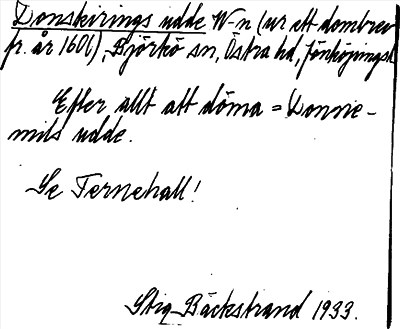 Donskirings udde N-n (ur ett dombrev
fr. år 1601), Björkö sn, Östra hd, Jönköpings l.
Efter allt att döma = Donnie-
mils udde.
Se Fernehall!
Stig Bäckstrand 1933.